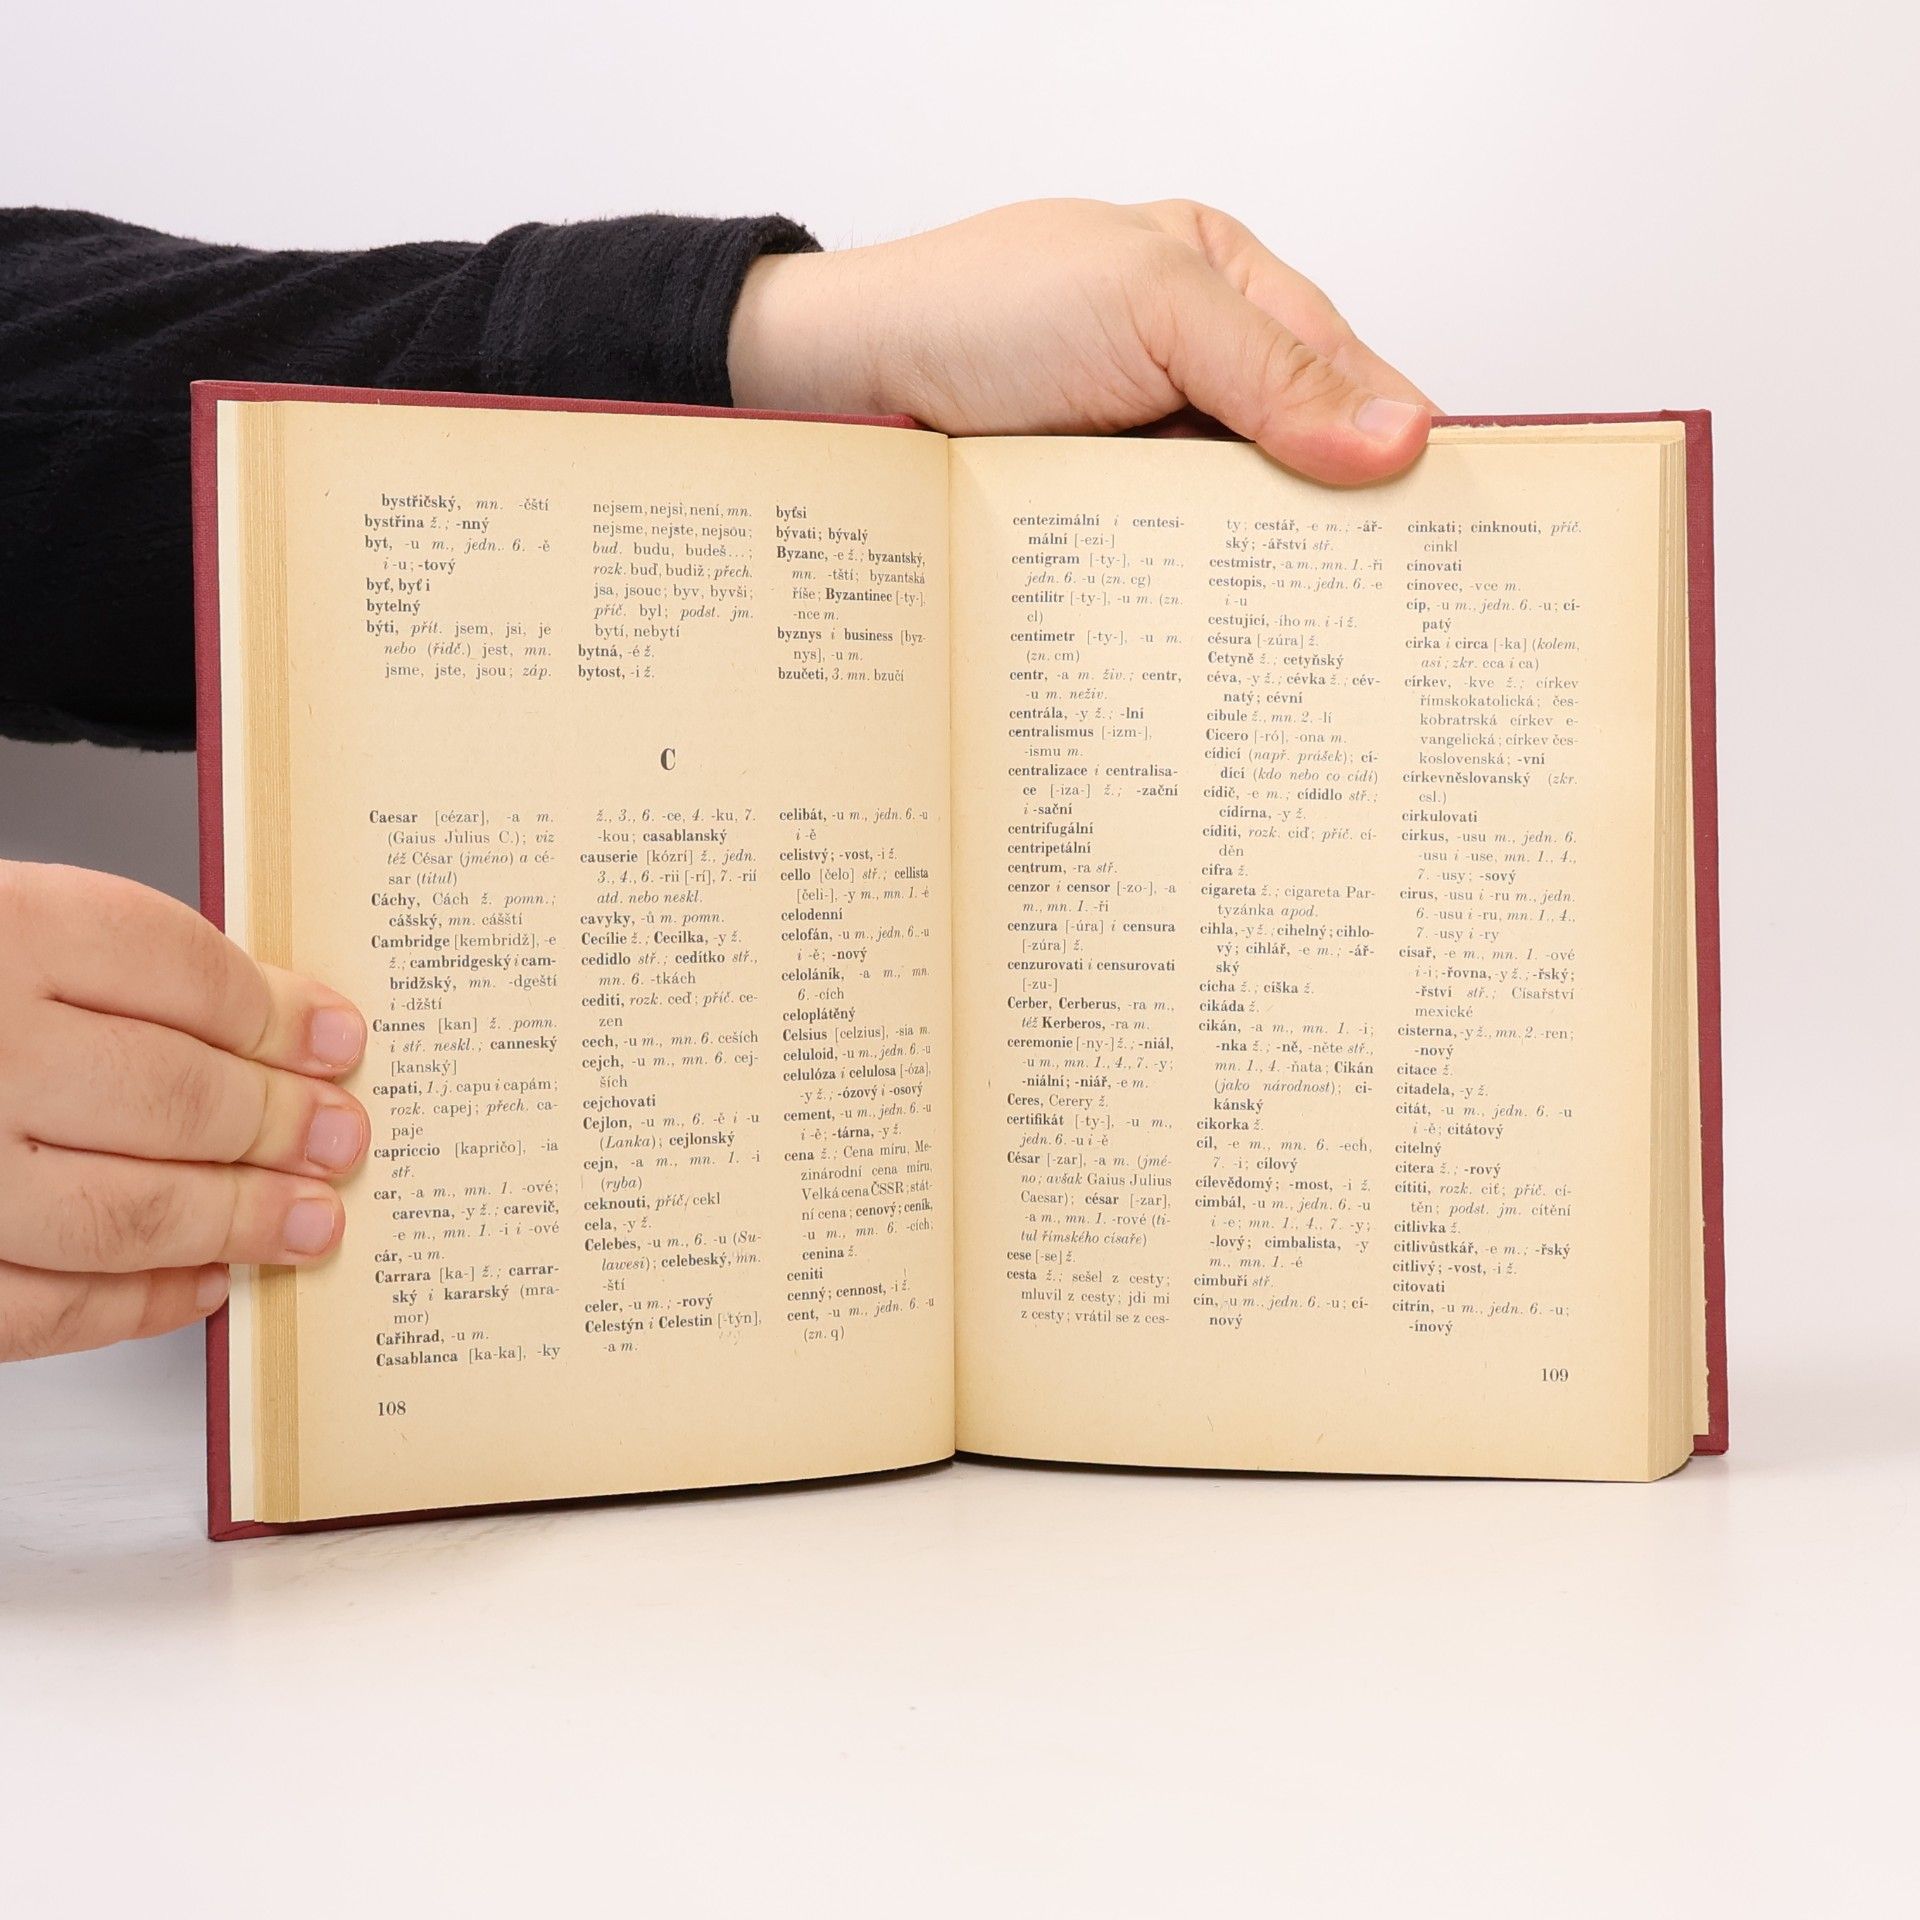 bystřičský, mn. -čští
bystřina ž.; -nný
byt, -u m., jedn. 6. -ě
i -u; -tový
byť, byť i
bytelný
býti, přít. jsem, jsi, je
nebo (řidč.) jest, mn.
jsme, jste, jsou; záp.
nejsem, nejsi, není, mn.
nejsme, nejste, nejsou;
bud. budu, budeš...;
rozk. buď, budiž; přech.
jsa, jsouc; byv, byvši;
příč. byl; podst. jm.
bytí, nebytí
bytná, -é ž.
bytost, -i ž.
byťsi
bývati; bývalý
Byzanc, -e ž.; byzantský,
mn. -tští; byzantská
říše; Byzantinec [-ty-],
-nce m.
byznys i business [byz-
nys], -u m.
bzučeti, 3. mn. bzučí
C
Caesar [cézar], -a m.
(Gaius Julius C.); viz
též César (jméno) a cé-
sar (titul)
Cáchy, Cách ž. pomn.;
cášský, mn. cášští
Cambridge [kembridž], -e
ž.; cambridgeský i cam-
bridžský, mn. -dgeští
i -džští
Cannes [kan] ž. pomn.
i stř. neskl.; canneský
[kanský]
capati, 1. j. capu i capám;
rozk. capej; přech. ca-
paje
capriccio [kapričo], -ia
stř.
car, -a m., mn. 1. -ové;
carevna, -y ž.; carevič,
-e m., mn. 1. -i i -ové
cár, -u m.
Carrara [ka-] ž.; carrar-
ský i kararský (mra-
mor)
Cařihrad, -u m.
Casablanca [ka-ka], -ky
ž., 3., 6. -ce, 4. -ku, 7.
-kou; casablanský
causerie [kózrí] ž., jedn.
3., 4., 6. -rii [-rí], 7. -rií
atd. nebo neskl.
cavyky, -ů m. pomn.
Cecílie ž.; Cecilka, -y ž.
cedidlo stř.; cedítko stř.,
mn. 6. -tkách
cediti, rozk. ceď; příč. ce-
zen
cech, -u m., mn. 6. ceších
cejch, -u m., mn. 6. cej-
ších
cejchovati
Cejlon, -u m., 6. -ě i -u
(Lanka); cejlonský
cejn, -a m., mn. 1. -i
(ryba)
ceknouti, příč. cekl
cela, -y ž.
Celebes, -u m., 6. -u (Su-
lawesi); celebeský, mn.
-ští
celer, -u m.; -rový
Celestýn i Celestin [-týn],
-a m.
celibát, -u m., jedn. 6. -u
i -ě
celistvý; -vost, -i ž.
cello [čelo] stř.; cellista
[čeli-], -y m., mn. 1. -é
celodenní
celofán, -u m., jedn. 6. -u
i -ě; -nový
celoláník, -a m., mn.
6. -cích
celoplátěný
Celsius [celzius], -sia m.
celuloid, -u m., jedn. 6. -u
celulóza i celulosa [-óza],
-y ž.; -ózový i -osový
cement, -u m., jedn. 6. -u
i -ě; -tárna, -y ž.
cena ž.; Cena míru, Me-
zinárodní cena míru,
Velká cena ČSSR; stát-
ní cena; cenový; ceník,
-u m., mn. 6. -cích;
cenina ž.
ceniti
cenný; cennost, -i ž.
cent, -u m., jedn. 6. -u
(zn. q)
108
centezimální i centesi-
mální [-ezi-]
centigram [-ty-], -u m.,
jedn. 6. -u (zn. cg)
centilitr [-ty-], -u m. (zn.
cl)
centimetr [-ty-], -u m.
(zn. cm)
centr, -a m. živ.; centr,
-u m. neživ.
centrála, -y ž.; -lní
centralismus [-izm-],
-ismu m.
centralizace i centralisa-
ce [-iza-] ž.; -zační
i -sační
centrifugální
centripetální
centrum, -ra stř.
cenzor i censor [-zo-], -a
m., mn. 1. -ři
cenzura [-úra] i censura
[-zúra] ž.
cenzurovati i censurovati
[-zu-]
Cerber, Cerberus, -ra m.,
též Kerberos, -ra m.
ceremonie [-ny-] ž.; -niál,
-u m., mn. 1., 4., 7. -y;
-niální; -niář, -e m.
Ceres, Cerery ž.
certifikát [-ty-], -u m.,
jedn. 6. -u i -ě
César [-zar], -a m. (jmé-
no; avšak Gaius Julius
Caesar); césar [-zar],
-a m., mn. 1. -rové (ti-
tul římského císaře)
cese [-se] ž.
cesta ž.; sešel z cesty;
mluvil z cesty; jdi mi
z cesty; vrátil se z ces-
ty; cestář, -e m.; -ář-
ský; -ářství stř.
cestmistr, -a m., mn. 1. -ři
cestopis, -u m., jedn. 6. -e
i -u
cestující, -ího m. i -í ž.
césura [-zúra] ž.
Cetyně ž.; cetyňský
céva, -y ž.; cévka ž.; cév-
natý; cévní
cibule ž., mn. 2. -lí
Cicero [-ró], -ona m.
cídicí (např. prášek); cí-
dící (kdo nebo co cídí)
cídič, -e m.; cídidlo stř.;
cídírna, -y ž.
cíditi, rozk. ciď; příč. cí-
děn
cifra ž.
cigareta ž.; cigareta Par-
tyzánka apod.
cihla, -y ž.; cihelný; cihlo-
vý; cihlář, -e m.; -ář-
ský
cícha ž.; cíška ž.
cikáda ž.
cikán, -a m., mn. 1. -i;
-nka ž.; -ně, -něte stř.,
mn. 1., 4. -ňata; Cikán
(jako národnost); ci-
kánský
cikorka ž.
cíl, -e m., mn. 6. -ech,
7. -i; cílový
cílevědomý; -most, -i ž.
cimbál, -u m., jedn. 6. -u
i -e; mn. 1., 4., 7. -y;
-lový; cimbalista, -y
m., mn. 1. -é
cimbuří stř.
cín, -u m., jedn. 6. -u; cí-
nový
cinkati; cinknouti, příč.
cinkl
cínovati
cínovec, -vce m.
cíp, -u m., jedn. 6. -u; cí-
patý
cirka i circa [-ka] (kolem,
asi; zkr. cca i ca)
církev, -kve ž.; církev
římskokatolická; čes-
kobratrská církev e-
vangelická; církev čes-
koslovenská; -vní
církevněslovanský (zkr.
csl.)
cirkulovati
cirkus, -usu m., jedn. 6.
-usu i -use, mn. 1., 4.,
7. -usy; -sový
cirus, -usu i -ru m., jedn.
6. -usu i -ru, mn. 1., 4.,
7. -usy i -ry
císař, -e m., mn. 1. -ové
i -i; -řovna, -y ž.; -řský;
-řství stř.; Císařství
mexické
cisterna, -y ž., mn. 2. -ren;
-nový
citace ž.
citadela, -y ž.
citát, -u m., jedn. 6. -u
i -ě; citátový
citelný
citera ž.; -rový
cítiti, rozk. ciť; příč. cí-
těn; podst. jm. cítění
citlivka ž.
citlivůstkář, -e m.; -řský
citlivý; -vost, -i ž.
citovati
citrín, -u m., jedn. 6. -u;
-ínový
109